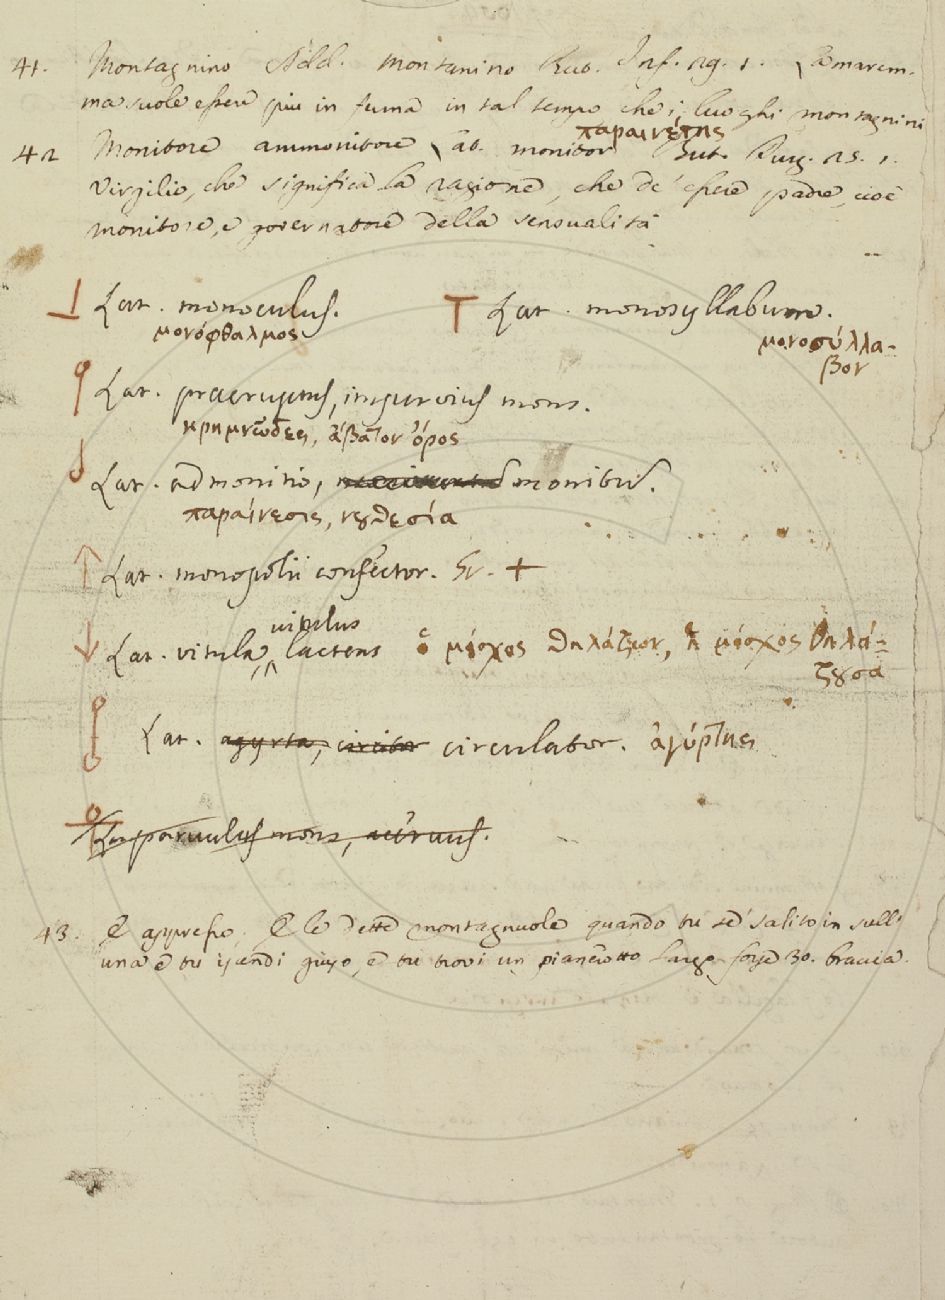 41. Montagnino Add. montanino But. Inf. 29. 1. \Emarem-
ma suole essere più in fumma in tal tempo che i luoghi montagnini
παραινέτης
42 Monitore ammonitore \ at. monitor But. Purg. 25. 1.
Virgilio, che significa la ragione, che de' essere padre, cioè
monitore, e governatore della sensualità
Lat. monoculus. Lat. monosyllabum.
μονόφθαλμος μονοσύλλα-
βον
Lat. praeruptus, impervius mons.
κρημνῶδες, ἄβατον ὄρος
Lat. admonitio, monitus.
παραίνεσις, νȣθεσία
Lat. monopolii confector. Gr. +
vitulus
Lat. vitula, lactens ὁ μόσχος θηλάζων, ἡ μόσχος θηλά-
ζȣσα
Lat. agyrta, circulator. ἀγύρτης
Lat. parvulus mons, acervus.
43. E appresso. E le dette montagnuole quando tu se' salito in sull'
una e tu scendi giuso, e tu trovi un pianerotto largo forse 30. braccia.